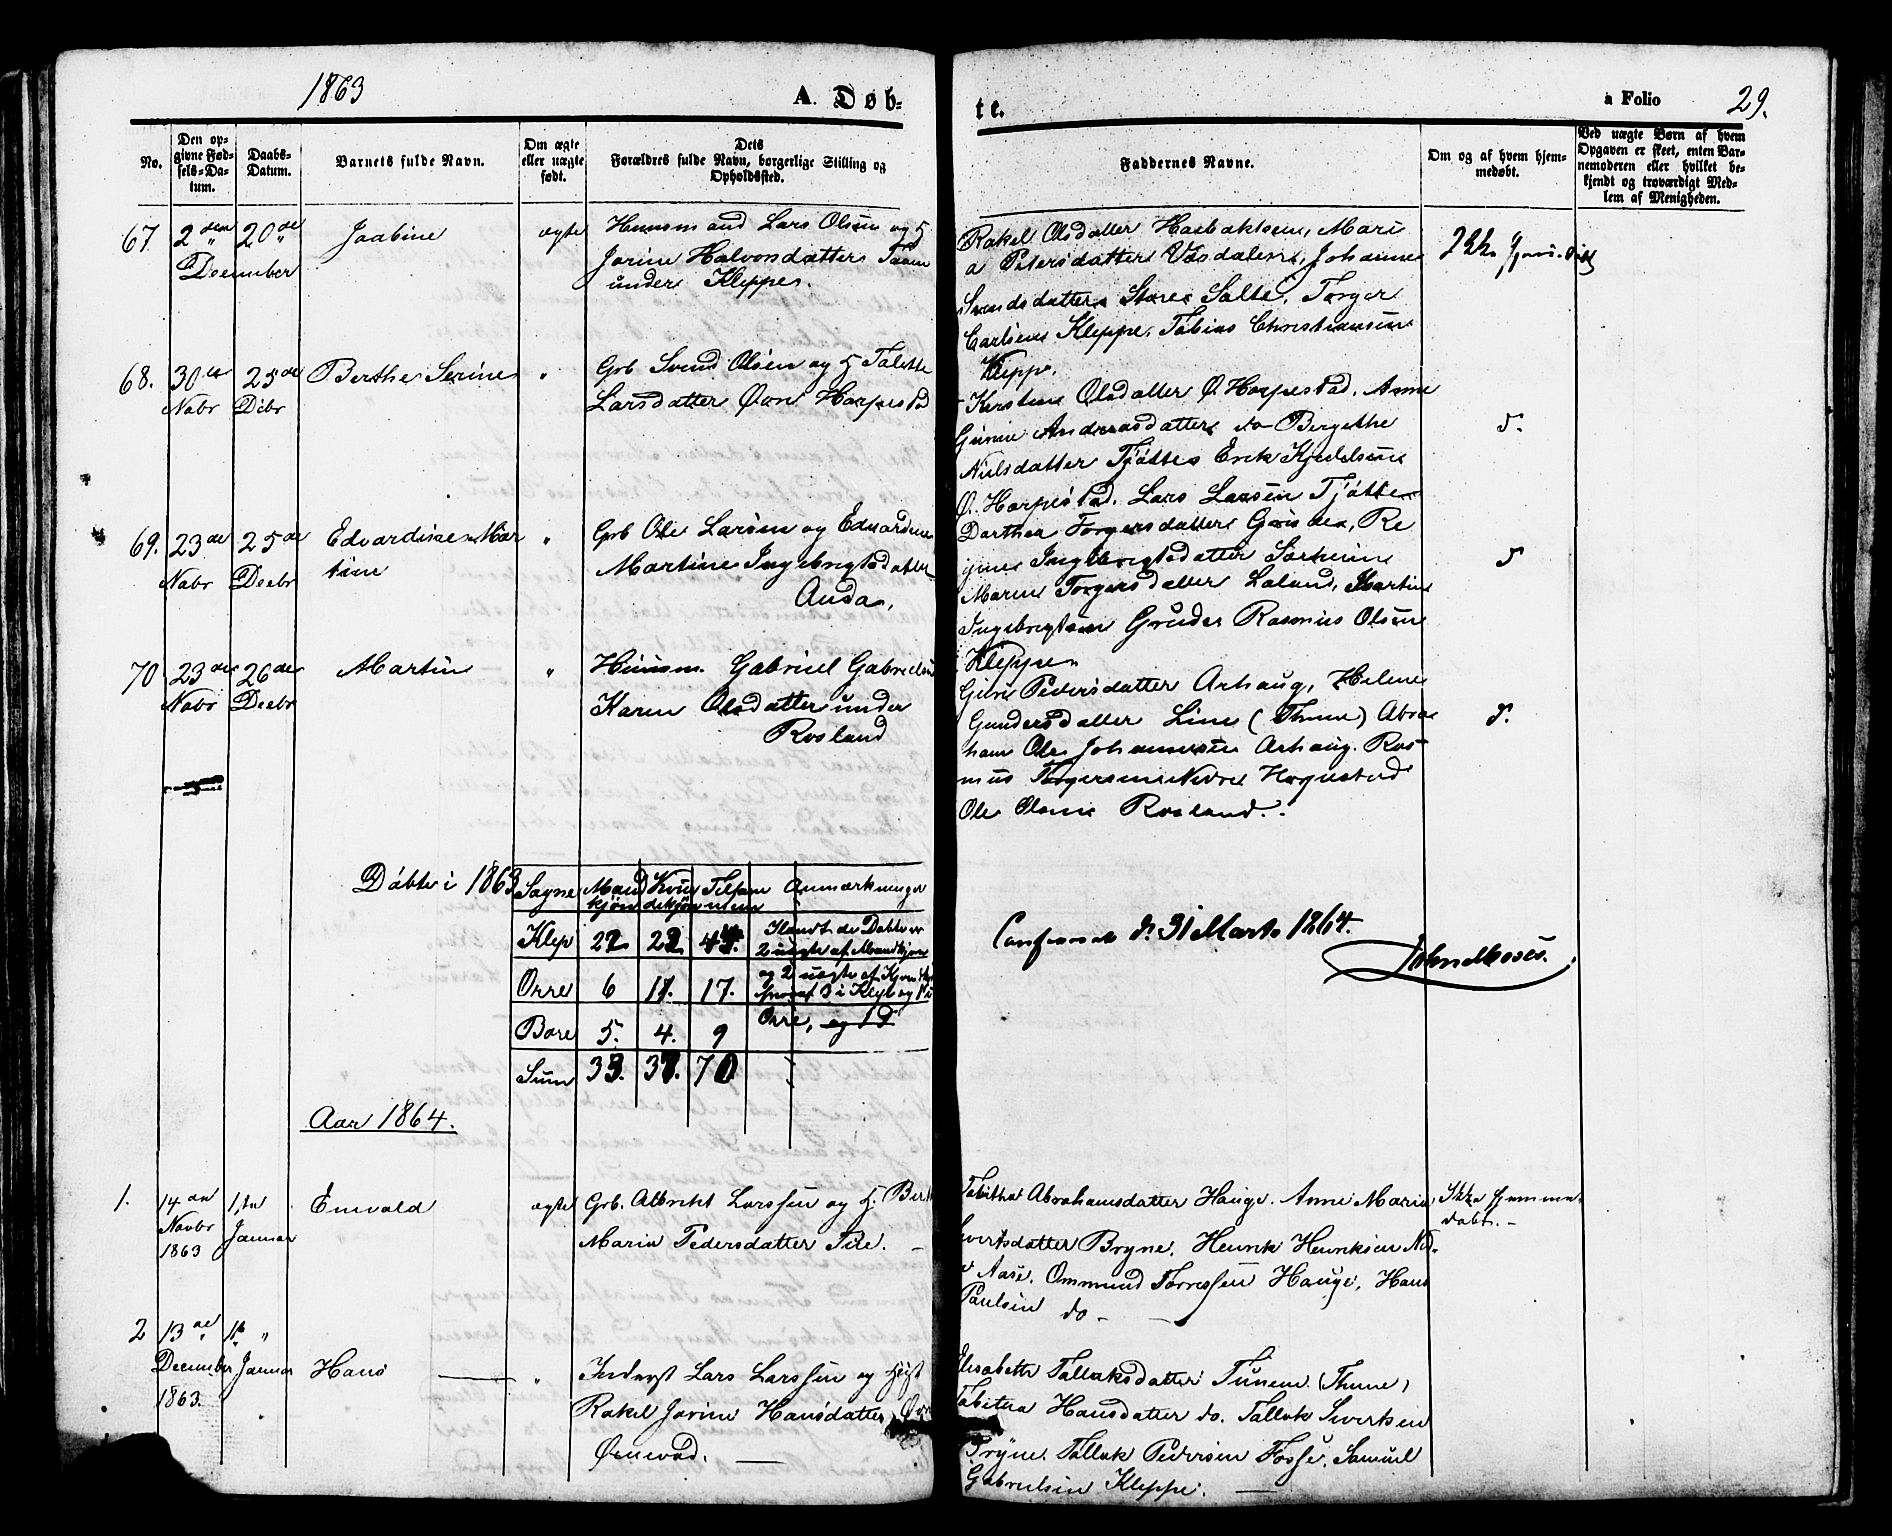 1863
A. Døb-
te.
a Folio 29.
No.
Den op-
givne Fød-
sels-Da-
tum.
Daabs-
Datum.
Barnets fulde Navn.
Om ægte
eller uægte
født.
Dets
Forældres fulde Navn, borgerlige Stilling og
Opholdsted.
Faddernes Navne.
Om og af hvem hjem-
medøbt.
Ved uægte Børn af hvem
Opgaven er skeet, enten Bar-
nemoderen eller hvilket be-
kjendt og troværdigt Med-
lem af Menigheden.
67. 2den December
20de "
Jaabine
ægte
Huusmand Lars Olsen og H
Jorine Halvorsdatter
under Kleppe.
Rakel Olsdatter Haabakken, Mari
a Petersdatter Vasdalen, Johanne
Svendsdatter Store Salte, Torger
Carlsen Kleppe, Tobias Christiansen
Kleppe.
Ikke
68. 30te Nobr
25de Dcbr
Berthe Serine
"
Grb Svend Olsen og H Talette
Larsdatter Øvre Harpestad
Kirstine Olsdatter Ø. Harpestad. Anne
Gurine Andreasdatter do Bergithe
Nielsdatter Tjøtte Erik Kjedelsen
Ø. Harpestad. Lars Larsen Tjøtte
d.
69. 23de Nobr
25de Decbr
Edvardine Mar
tine
"
Grb Ole Larsen og Edvardine
Martine Ingebrigtsdatter
Anda.
Dorthea Torgersdatter Gruder, Re
gine Ingebrigtsdatter Sørheim
Maren Torgersdatter Laland, Martin
Ingebrigtsen Gruder Rasmus Olsen
Kleppe
d
70 23de Nobr
26de Decbr
Martin
"
Huusm. Gabriel Gabrielsen
Karen Olsdatter under
Rosland
Guri Pedersdatter Arhaug, Helene
Gundersdatter Line (Thime) Abra
ham Ole Johannesen Arhaug. Ras
mus Torgersen Nedre Hognestad
Ole Olsen Rosland.
d.
Døbte i 1863
Sogne Mand
kjøn Kvin
dekjøn Tilsam
men Anmærkninger
Klep 22 22 44. Iblandt de Døbte er
2 uægte af Mandkjøn
Orre 6 11. 17. og 2 uægte af Kvindekjøn
hvoraf 3 i Klep og 1 i
Bore 5. 4. 9 Orre,
Sum 33. 37. 70
d. 31 Marts 1864.
Aar 1864.
1. 14de
Novbr
1863
1ste
Januar
Enevald
ægte
Grb. Albrikt Larssen og H. Berth
Maria Pedersdatter Pile.
Tabitha Abrahamsdatter Hauge. Anne Maria
Sivertsdatter Bryne. Henrik Henriksen Ned-
Aase. Ommund Torressen Hauge, Hans
Paulsen do
Ikke hjemme-
døbt.
2 13de "
December
1863.
1ste "
Januar
Hans
"
Inderst Lars Larssen og
Rakel Jorine Hansdatter
Ørnevad.
Elisabeth Tallaksdatter Tunem (Thime)
Tabitha Hansdatter do. Tallak Sivertsen
Bryne. Tallak Pedersen Fosse. Samuel
Gabrielsen Kleppe.